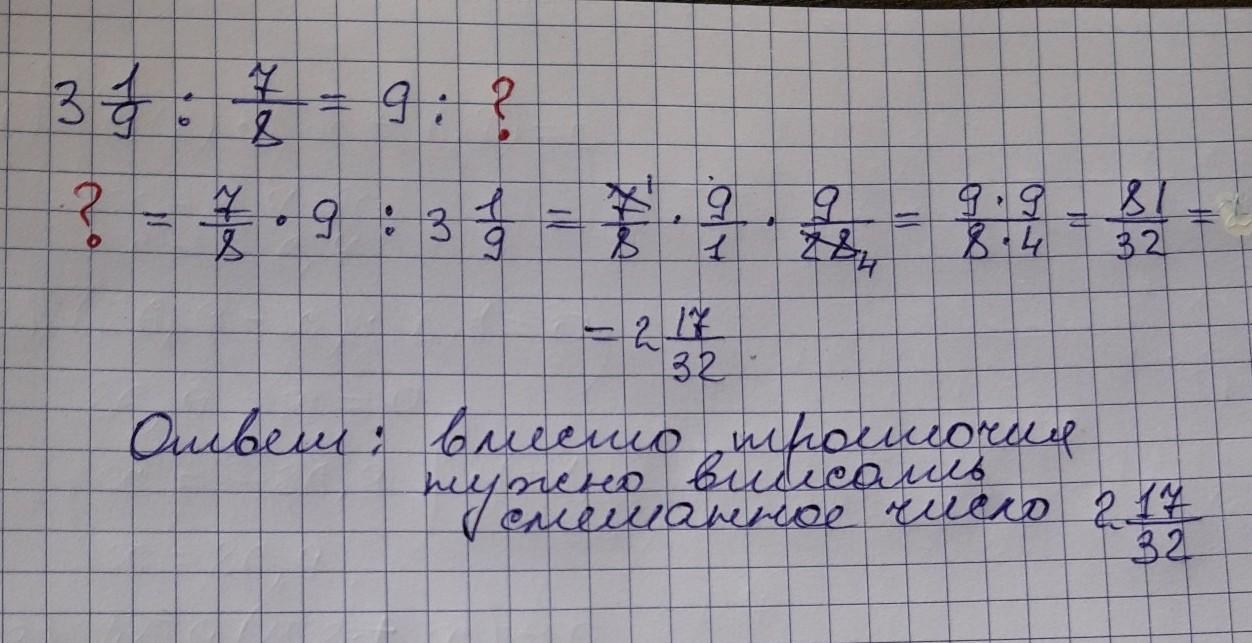 3 1/9 : 7/8 = 9 : ?
? = 7/8 · 9 : 3 1/9 = 7/8 · 9/1 · 9/28 = 9·9/8·4 = 81/32 =
= 2 17/32
Ответ: вместо троеточия
нужно вписать
смешанное число 2 17/32